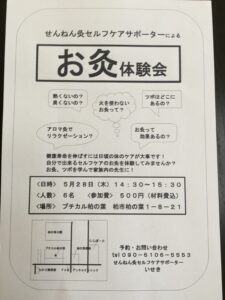 せんねん灸セルフケアサポーターによる
お灸体験会
熱くないの？
臭くないの？
火を使わない
お灸って？
ツボはどこに
あるの？
アロマ灸で
リラクゼーション？
お灸って
効果あるの？
健康寿命を伸ばすには日頃の体のケアが大事です！
自分で出来るセルフケアのお灸を体験してみませんか？
お灸、ツボを学んで家族内の先生に！
<日時>　５月２８日（木）１４：３０〜１５：３０
<人数>　６名　<参加費>　５００円（材料費込）
<場所>　プチカル柏の葉　柏市柏の葉１－８－２１
予約・お問い合わせ
tel ０９０－６１０６－５５５３
せんねん灸セルフケアサポーター
いせき